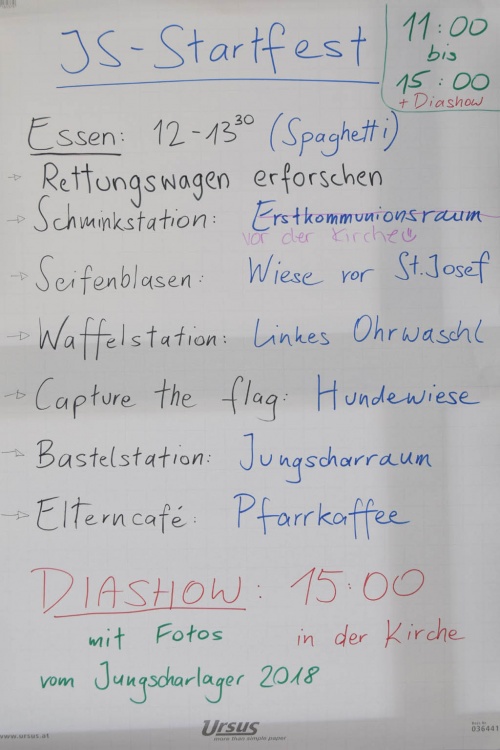 JS-Startfest
11:00
bis
15:00
+ Diashow
Essen: 12-13³⁰ (Spaghetti)
→ Rettungswagen erforschen
→ Schminkstation: Erstkommunionsraum
vor der Kirche
→ Seifenblasen: Wiese vor St. Josef
→ Waffelstation: Linkes Ohrwaschl
→ Capture the flag: Hundewiese
→ Bastelstation: Jungscharraum
→ Elterncafé: Pfarrkaffee
DIASHOW: 15:00
mit Fotos in der Kirche
vom Jungscharlager 2018
www.ursus.at
Ursus
more than simple paper
036441